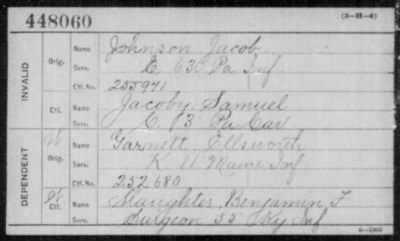 448060 (3-25-6)
INVALID
Orig. Name Johnson Jacob
Serv. E 63" Pa Inf
Ctf. No. 255941
Ctf. Name Jacoby, Samuel
Serv. C. 3" Pa Cav
DEPENDENT
W Orig. Name Garnett, Ellsworth
Serv. K 11" Maine Inf
Ctf. No. 252680
Ctf. Name Slaughter, Benjamin F
Serv. Surgeon 55" Ky Inf